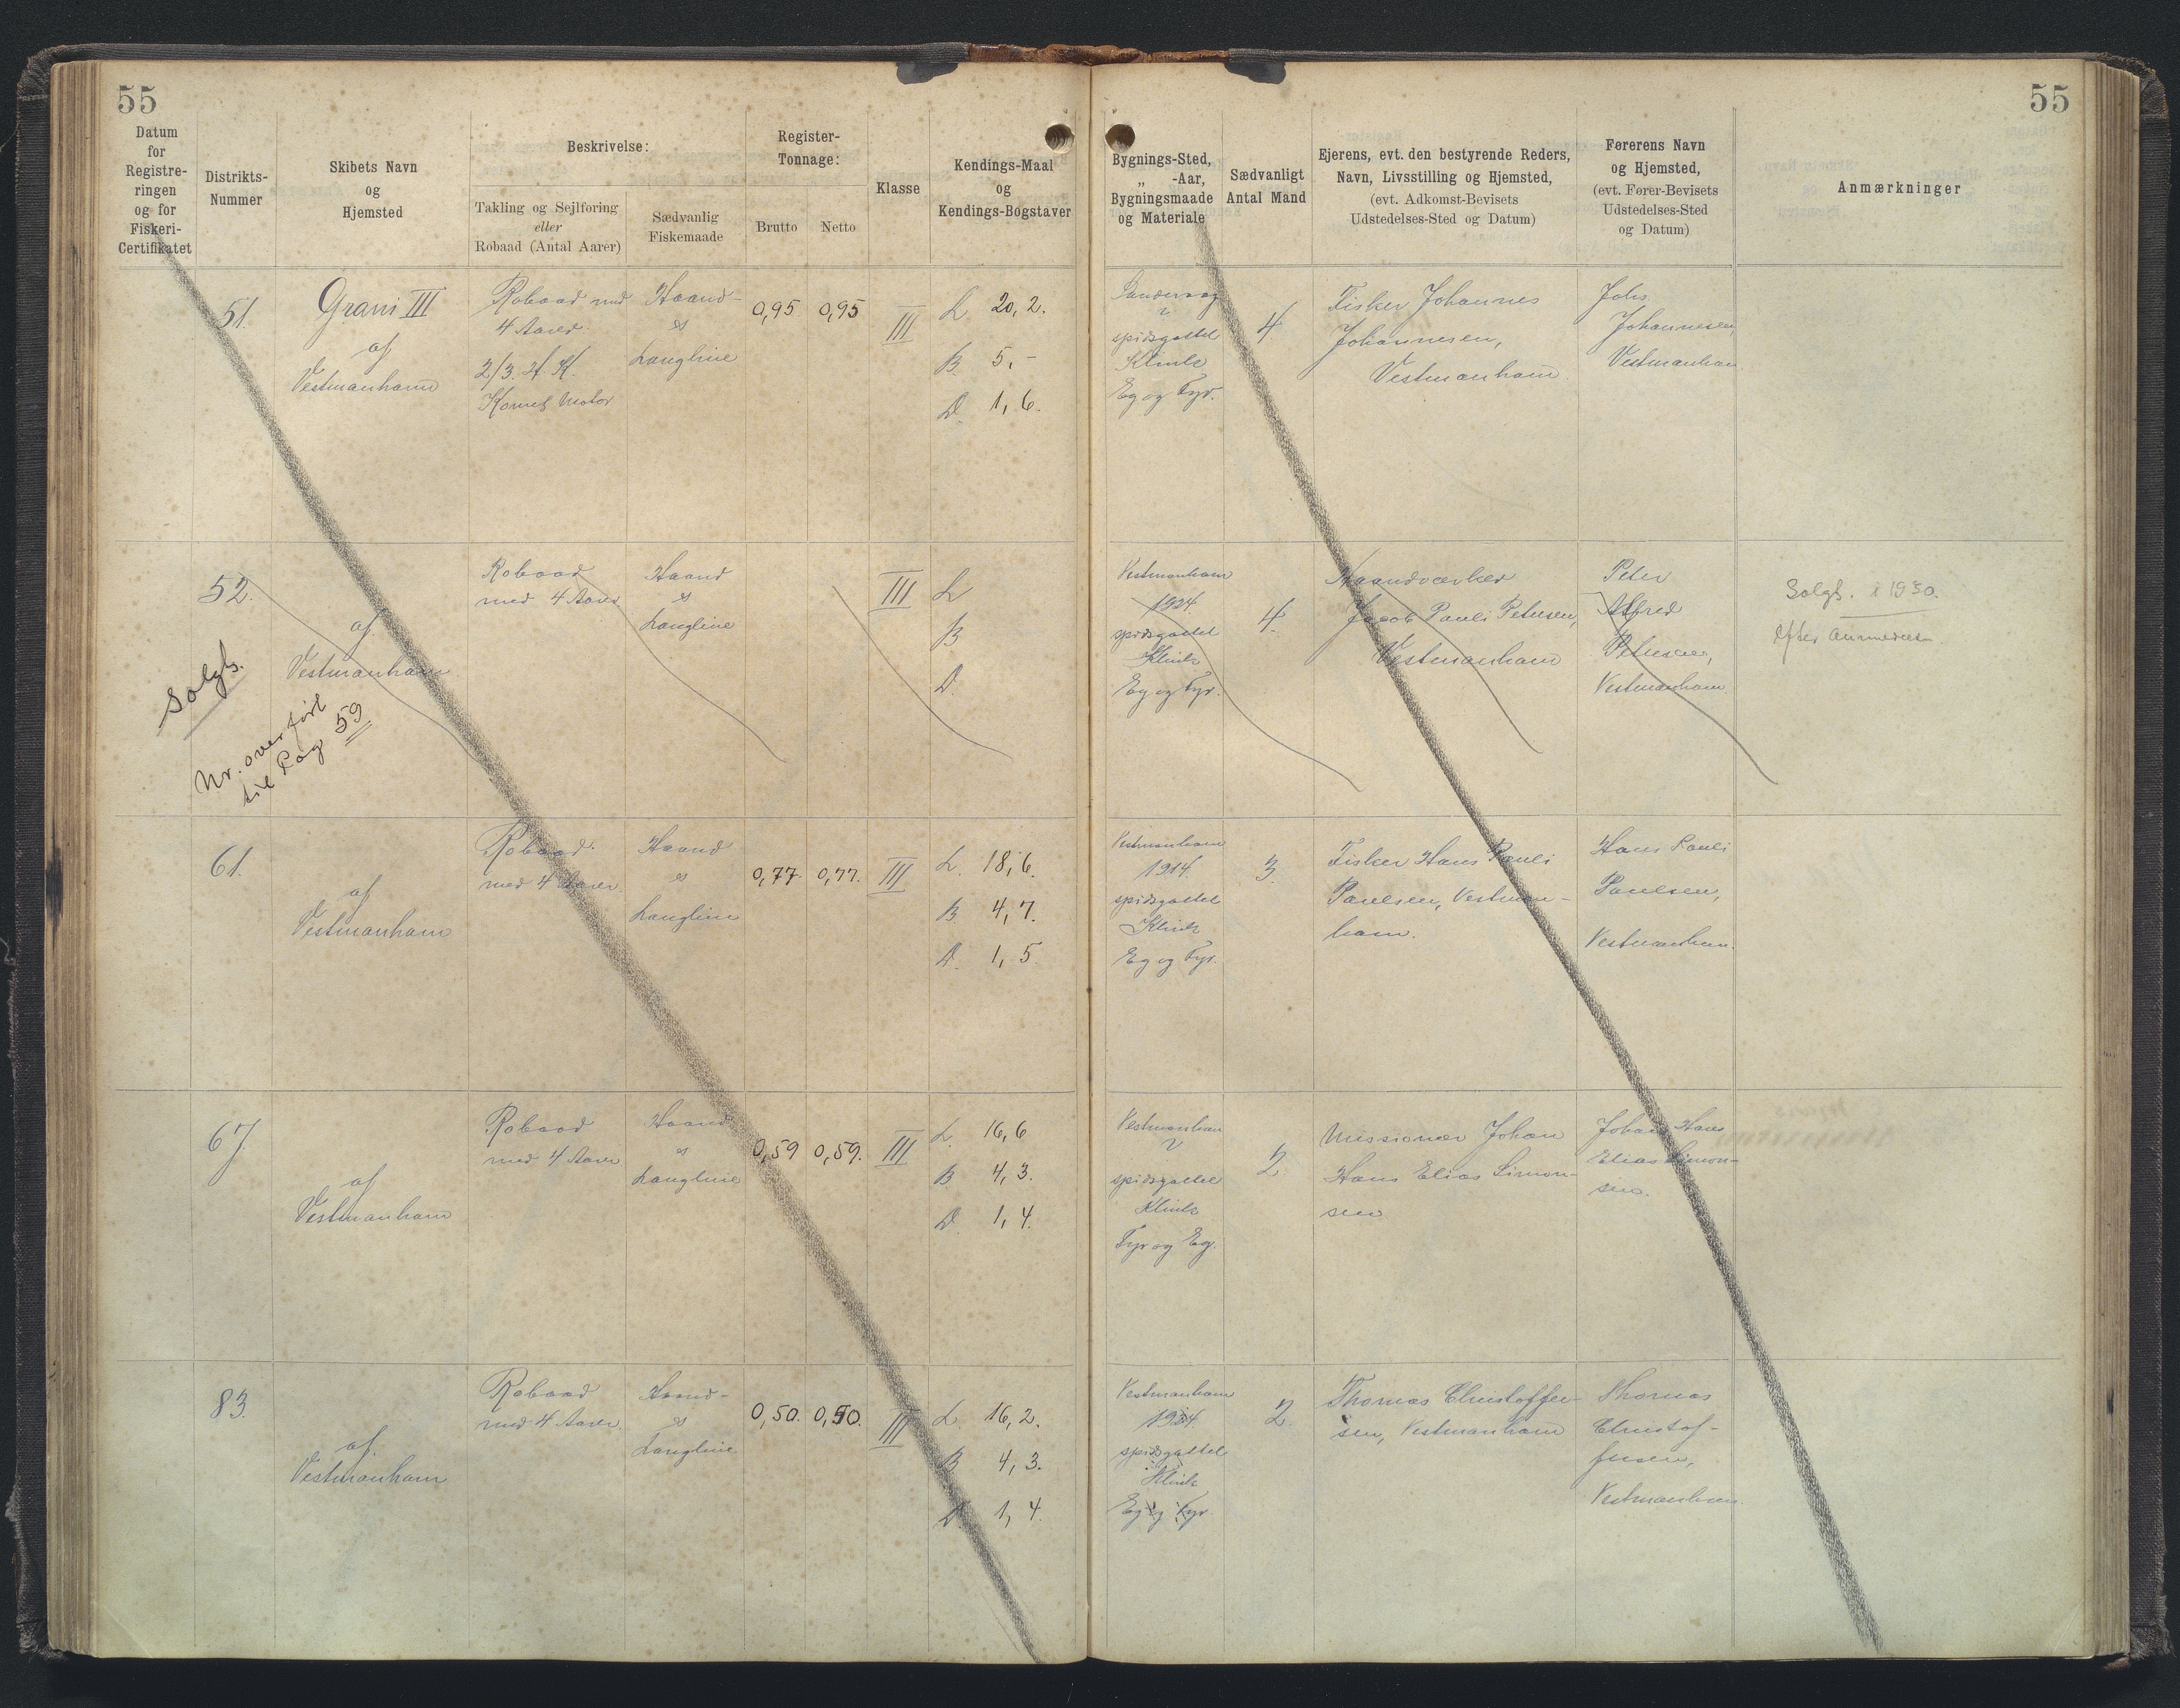 55
55
Datum
for
Registre-
ringen
og for
Fiskeri-
Certifikatet
Distrikts-
Nummer
Skibets Navn
og
Hjemsted
Beskrivelse:
Takling og Sejlføring
eller
Robaad (Antal Aarer)
Sædvanlig
Fiskemaade
Register-
Tonnage:
Brutto
Netto
Klasse
Kendings-Maal
og
Kendings-Bogstaver
Bygnings-Sted,
„ -Aar,
Bygningsmaade
og Materiale
Sædvanligt
Antal Mand
Ejerens, evt. den bestyrende Reders,
Navn, Livsstilling og Hjemsted,
(evt. Adkomst-Bevisets
Udstedelses-Sted og Datum)
Førerens Navn
og Hjemsted,
(evt. Fører-Bevisets
Udstedelses-Sted
og Datum)
Anmærkninger
51.
Grani III
af
Vestmanhavn
Robaad med
4 Aarer.
2/3. H.K.
Motor
Haand-
og
Langline
0,95
0,95
III
L 20,2.
B. 5,-
D. 1,6.
spidsgattet
Klink
Eg og Fyr.
4
Fisker Johannes
Johannesen,
Vestmanhavn.
Johs.
Johannesen,
Vestmanhavn
52.
af
Vestmanhavn
Solgt.
Nr. overført
til Pag 59
Robaad
med 4 Aarer
Haand
og
Langline
III
L
B
D.
Vestmanhavn
1924
spidsgattet
Klink
Eg og Fyr.
4.
Haandværker
Jacob Pauli Petersen,
Vestmanhavn
Peter
Alfred
Petersen,
Vestmanhavn
Solgt. i 1930.
efter
61.
af
Vestmanhavn
Robaad
med 4 Aarer.
Haand
og
Langline
0,77.
0,77.
III
L. 18,6.
B. 4,7.
D. 1,5.
Vestmanhavn
1914.
spidsgattet
Klink
Eg og Fyr.
3.
Fisker Hans Pauli
Poulsen, Vestman-
havn.
Hans Pauli
Poulsen,
Vestmanhavn.
67.
af
Vestmanhavn
Robaad
med 4 Aarer
Haand
og
Langline
0,59
0,59.
III
L. 16,6
B. 4,3.
D. 1,4.
Vestmanhavn
spidsgattet
Klink
Fyr og Eg.
2.
Missionær Johan
Hans Elias Simon-
sen
Johan Hans
Elias Simon-
sen.
83.
af.
Vestmanhavn
Robaad
med 4 Aarer.
Haand-
og
Langline
0,50.
0,50.
III
L. 16,2.
B. 4,3.
D. 1,4.
Vestmanhavn
spidsgattet
Klink
Eg og Fyr
2.
Thomas Christoffer-
sen, Vestmanhavn
Thomas
Christof-
fersen,
Vestmanhavn